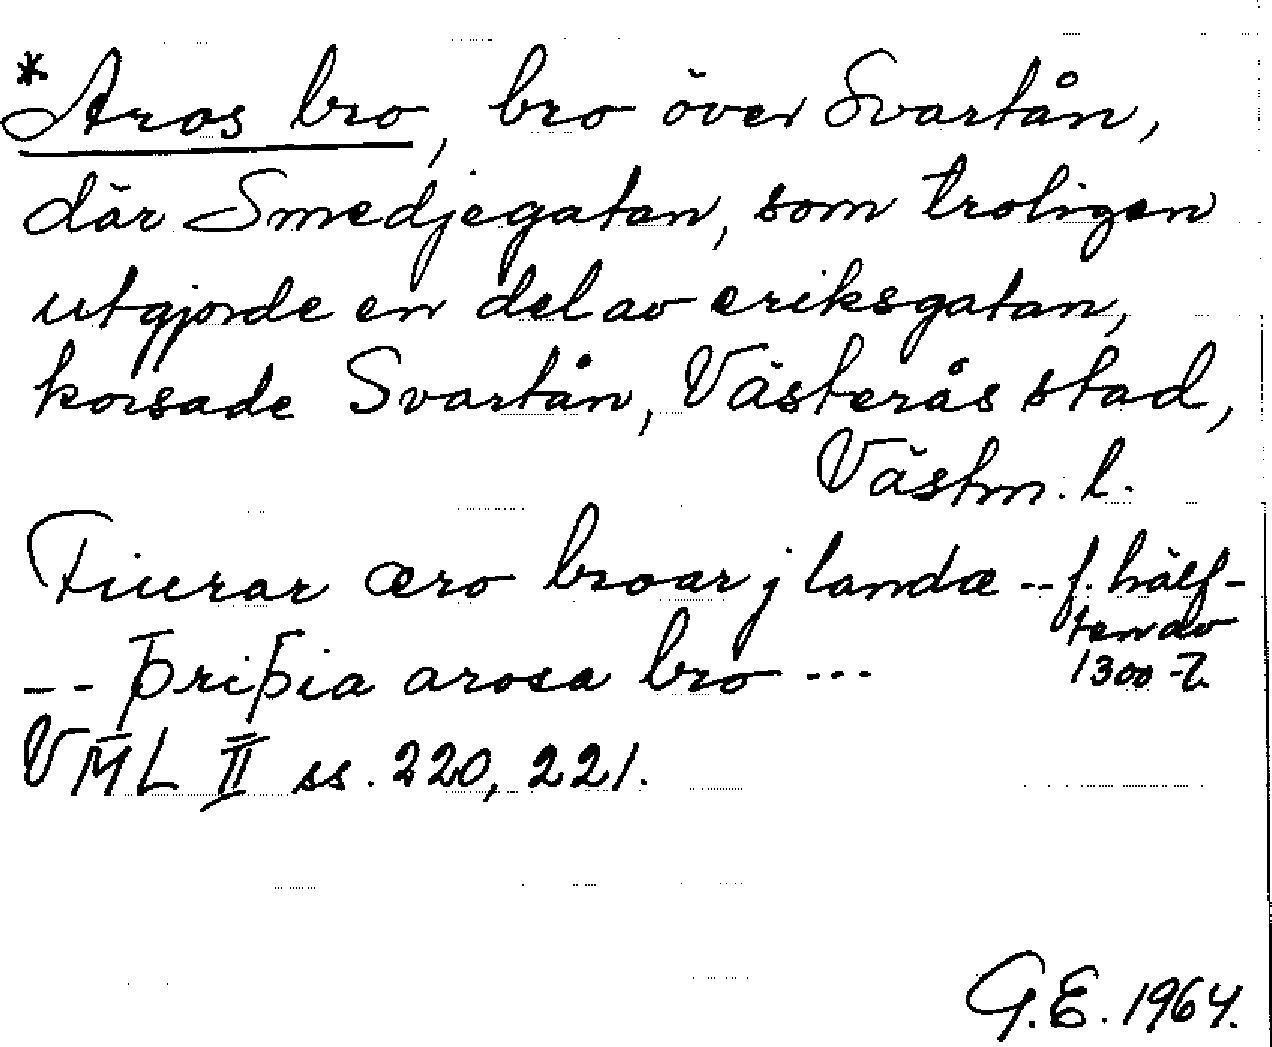 *Aros bro, bro över Svartån,
där Smedjegatan, som troligen
utgjorde en del av eriksgatan,
korsade Svartån, Västerås stad,
Västm. l.
Fiurar æro broar j landæ -- f. hälf-
ten av
-- þriþia arosa bro ---
1300-t.
VML II ss. 220, 221.
G.E. 1964.